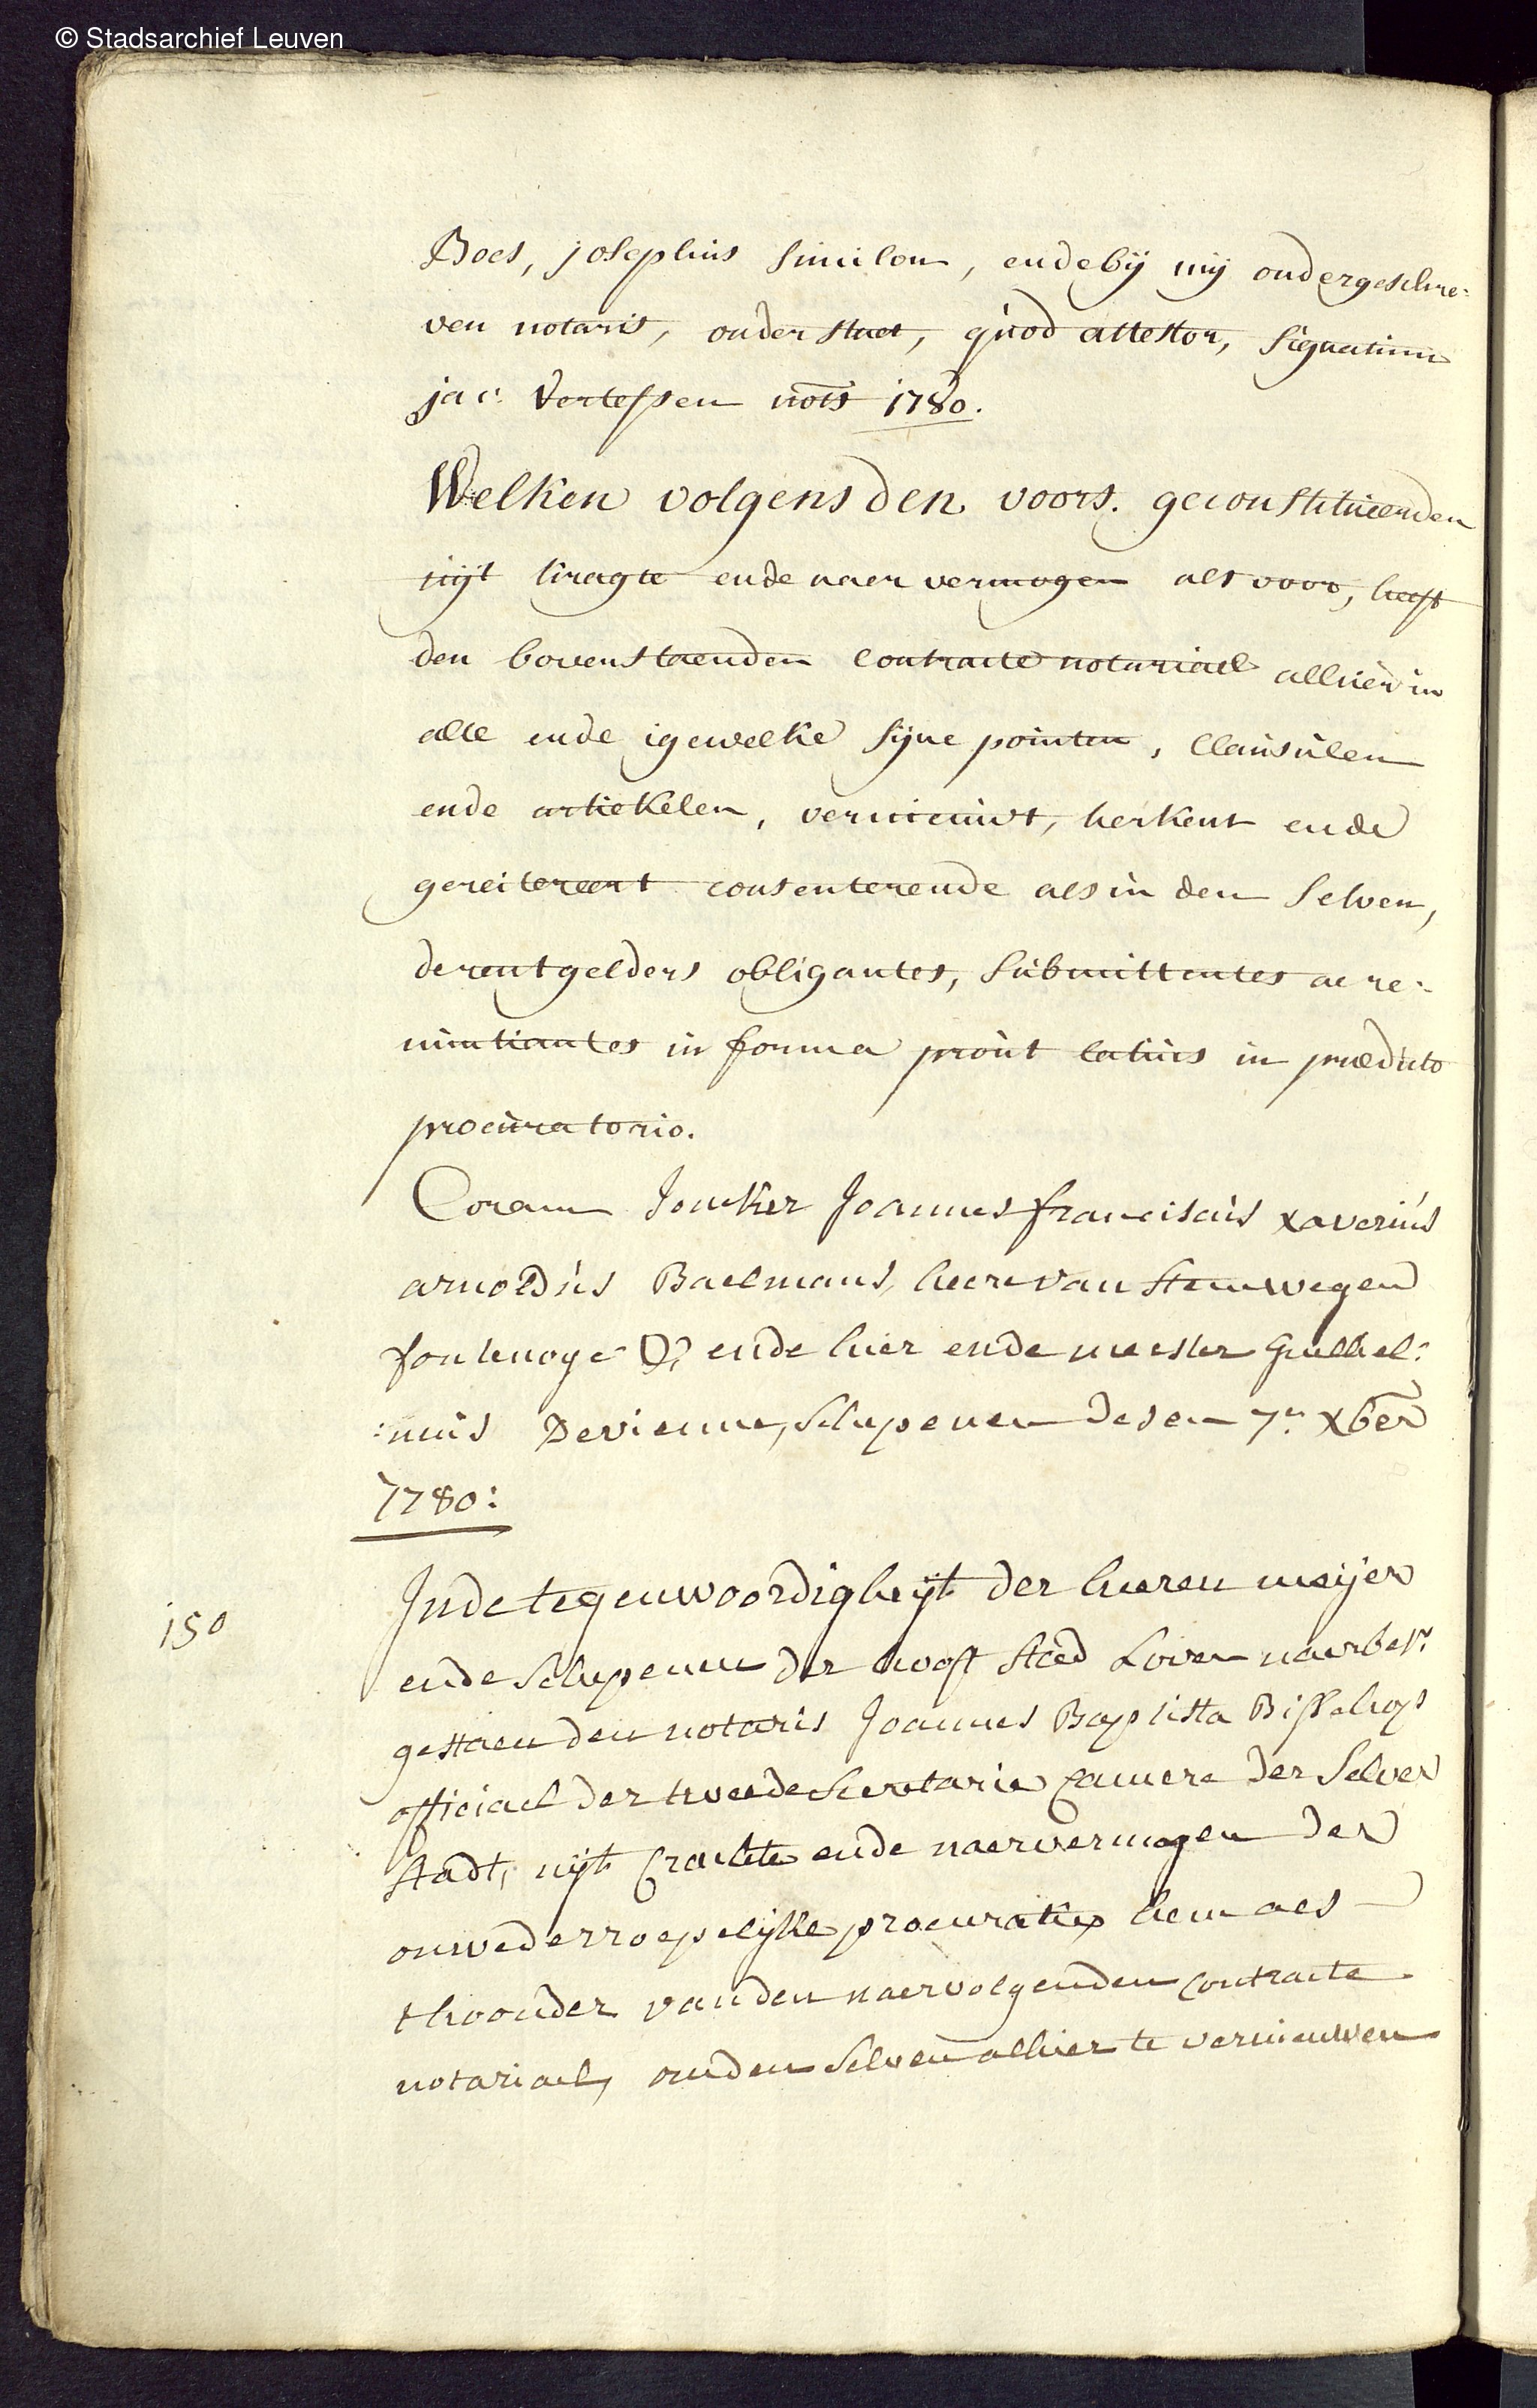 © Stadsarchief Leuven
Boes, josephus Similon, ende bij mij ondergeschre:
ven notaris, onder staet, quod attestor, Signatum
jac: Vertessen nots 1780.
Welken volgens den voors. geconstitueerden
uijt kragte ende naer vermogen als voor, heeft
den bovenstaenden contracte notariael alhier in
alle ende igewelke sijne pointen, clausulen
ende artiekelen, vernieuwt, herkent ende
gereitereert consenterende als in den selven,
de rentgelders obligantes, submittentes ac re:
nuntiantes in forma prout latius in prædicto
procuratorio.
Coram Joncker Joannes franciscus xaverius
arnoldus Baelmans, heere van Steenwegen
fontenoye &c ende heer ende meester Guillel:
:mus Devienne, Schepenen desen 7en xber
1780:
150
In de tegenwoordigheijt der heeren meijer
ende Schepenen der hooft stad Loven naerbesr
gestaen den notaris Joannes Baptista Bisschops
officiael der tweede Secretarie camere der Selver
stadt, uijt crachte ende naer vermogen der
onwederroepelijke procuratie hem als
thoonder van den naervolgenden contracte
notariael, om den selven alhier te vernieuwen